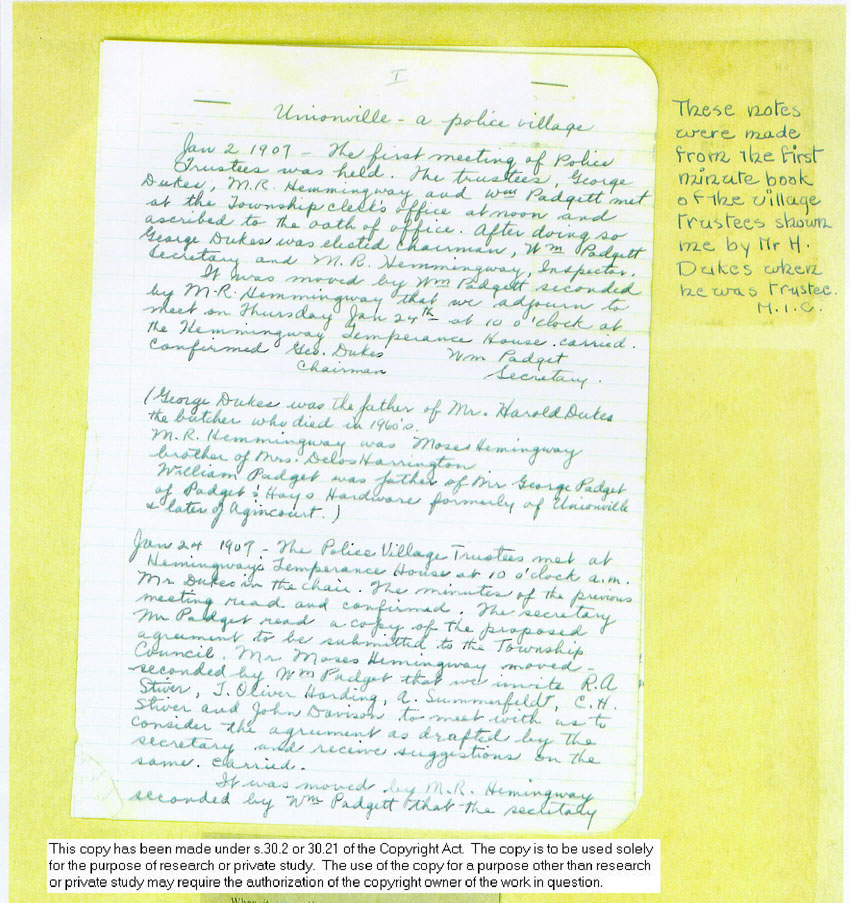 I
Unionville - a police village
Jan 2 1907 - The first meeting of Police
Trustees was held. The trustees, George
Dukes, M.R. Hemmingway and Wm Padgett met
at the Township clerk's office at noon and
ascribed to the oath of office. After doing so
George Dukes was elected Chairman, Wm Padgett
Secretary and M.R. Hemmingway, Inspector.
It was moved by Wm Padgett seconded
by M.R. Hemmingway that we adjourn to
meet on Thursday Jan 24th at 10 o'clock at
the Hemmingway Temperance House. carried.
Confirmed Geo. Dukes Wm Padget
Chairman Secretary.
(George Dukes was the father of Mr. Harold Dukes
the butcher who died in 1960's.
M.R. Hemmingway was Moses Hemingway
brother of Mrs. Delos Harrington
William Padget was father of Mr George Padget
of Padget & Hays Hardware formerly of Unionville
& later of Agincourt.)
Jan 24 1907 - The Police Village Trustees met at
Hemingway's Temperance House at 10 o'clock a.m.
Mr Dukes in the chair. The minutes of the previous
meeting read and confirmed. The secretary
Mr Padget read a copy of the proposed
agrument to be submitted to the Township
Council. Mr Moses Hemingway moved -
seconded by Wm Padget that we invite R.A
Stiver, T. Oliver Harding, A. Summerfeldt, C.H.
Stiver and John Davison to meet with us to
consider the agrument as drafted by the
secretary and receive suggestions on the
same. carried.
It was moved by M.R. Hemingway
seconded by Wm Padgett that the secretary
These notes
were made
from the first
minute book
of the village
trustees shown
me by Mr H.
Dukes when
he was trustee.
M.I.C.
This copy has been made under s.30.2 or 30.21 of the Copyright Act. The copy is to be used solely
for the purpose of research or private study. The use of the copy for a purpose other than research
or private study may require the authorization of the copyright owner of the work in question.